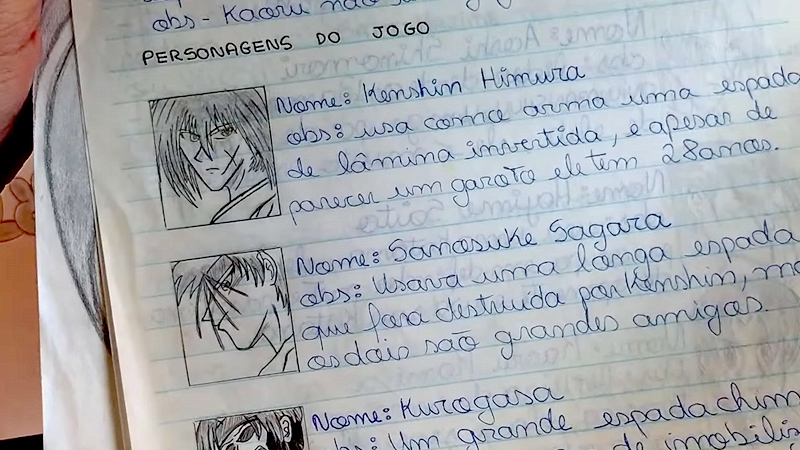 obs - Kaoru não
PERSONAGENS DO JOGO
Nome: Kenshin Himura
obs: usa como arma uma espada
de lâmina invertida, e apesar de
parecer um garoto ele tem 28 anos.
Nome: Sanosuke Sagara
obs: Usava uma longa espada
que fora destruida por Kenshin, ma
os dois são grandes amigos.
Nome: Kurogasa
obs: Um grande espadachim
de imobiliz